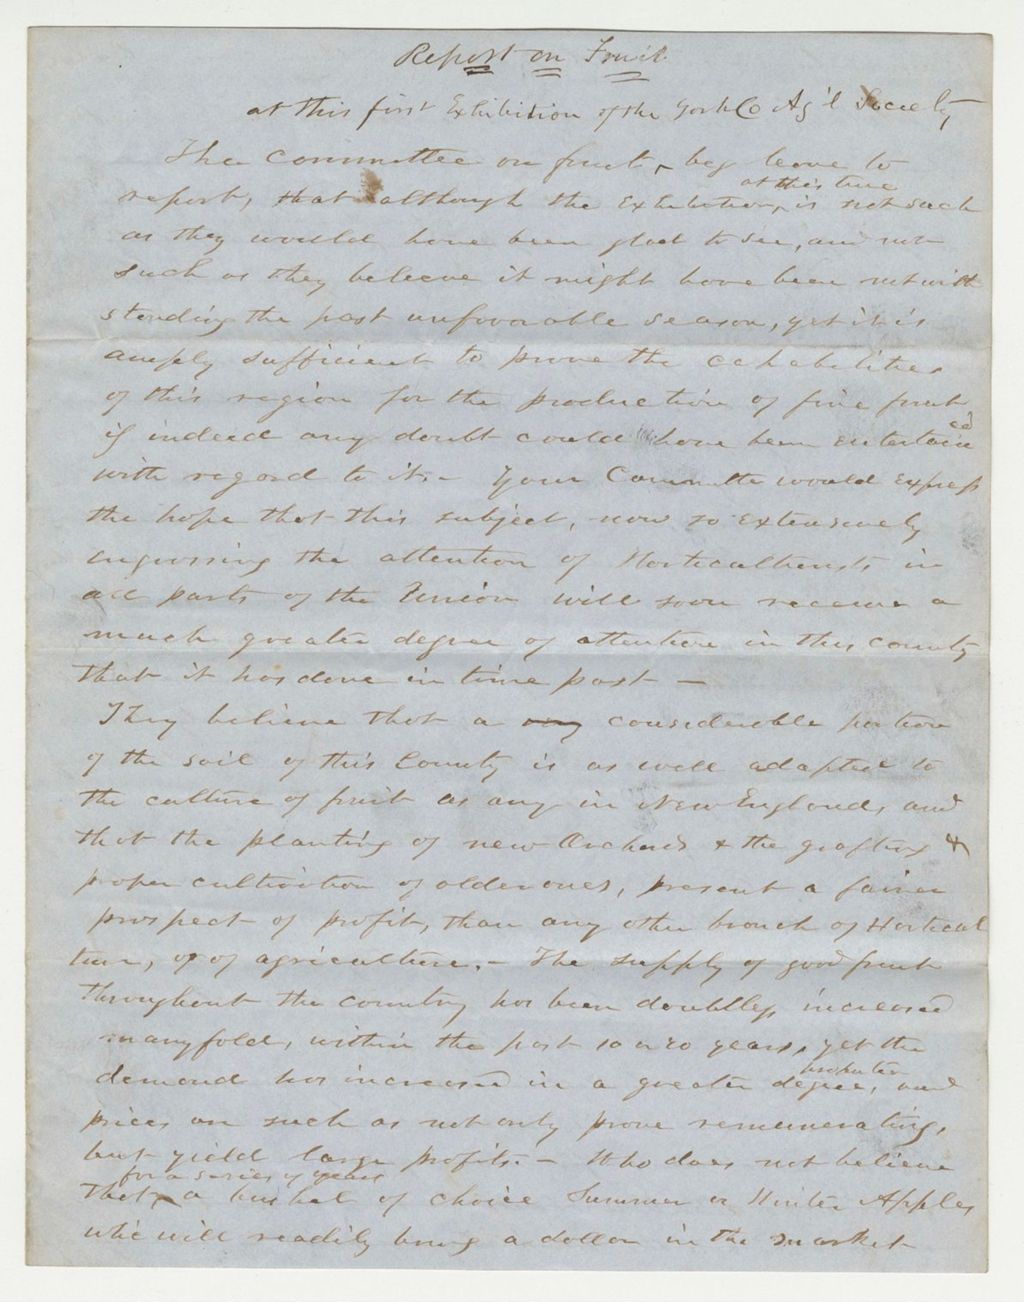 Report on Fruit
at this first Exhibition of the York Co Ag'l Society
The Committee on fruit, beg leave to
at this time
report, that although the Exhibition, is not such
as they would have been glad to see, and not
such as they believe it might have been notwith
standing the past unfavorable season, yet it is
amply sufficient to prove the capabilities
of this region for the production of fine fruit
if indeed any doubt could have been entertained
with regard to it. - Your Committe would express
the hope that this subject, now so extensively
engrossing the attention of Horticulturists in
all parts of the Union will soon receive a
much greater degree of attention in this county
that it has done in time past —
They believe that a considerable portion
of the soil of this County is as well adapted to
the culture of fruit as any in New England, and
that the planting of new Orchards & the grafting &
proper cultivation of older ones, present a fairer
prospect of profit, than any other branch of Horticul
ture, or of agriculture. - The supply of good fruit
throughout the country has been doubtless increased
manyfold, within the past 10 or 20 years, yet the
demand has increased in a greater degree, and
prices are such as not only prove remunerating,
but yield large profits. - Who does not believe
for a series of years
that a bushel of choice Summer or Winter Apples
will readily bring a dollar in the market